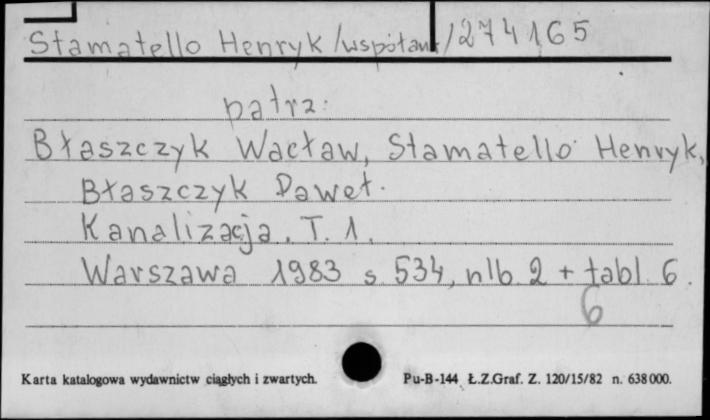 Stamatello Henryk /współaut/ 274165
patrz:
Błaszczyk Wacław, Stamatello Henryk,
Błaszczyk Paweł.
Kanalizacja. T. 1.
Warszawa 1983 s. 534, nlb. 2 + tabl. 6.
6
Karta katalogowa wydawnictw ciągłych i zwartych. Pu-B-144 Ł.Z.Graf. Z. 120/15/82 n. 638000.